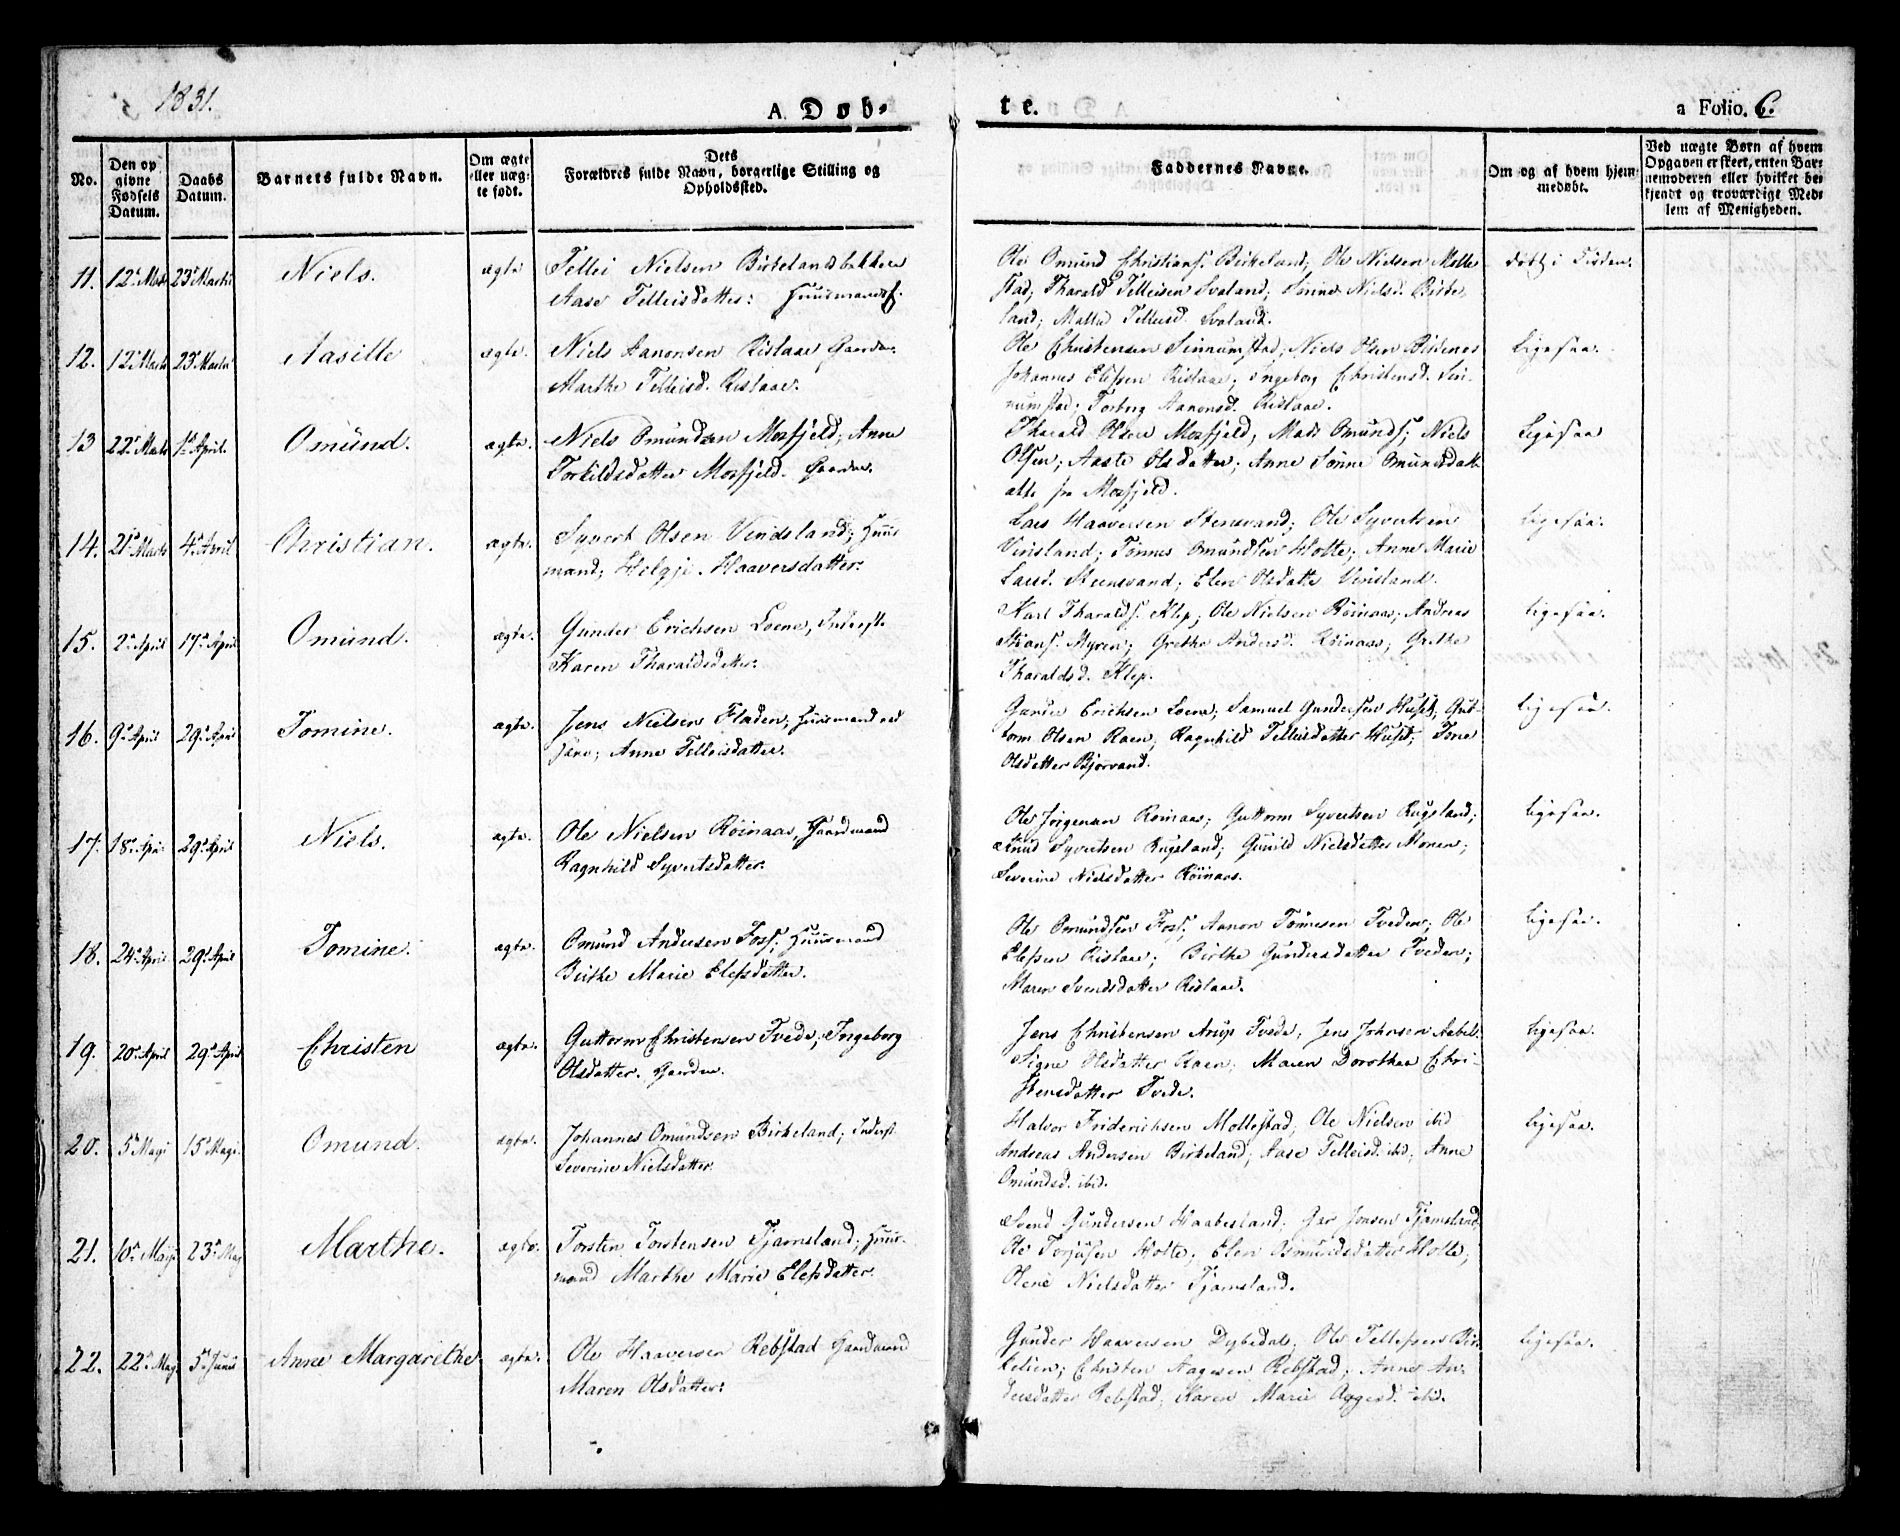 1831.
A. Døb-
te.
a Folio. 6.
No.
Den op
givne
Fødsels
Datum.
Daabs
Datum.
Barnets fulde Navn.
Om ægte
eller uæg-
te født.
Dets
Forældres fulde Navn, borgerlige Stilling og
Opholdssted.
Faddernes Navne.
Om og af hvem hjem-
medøbt.
Ved uægte Børn af hvem
Opgaven er skeet, enten Bar-
nemoderen eller hvilket be-
kjendt og troværdigt Med-
lem af Menigheden.
11. 12te Marts 23de Marts Niels. ægte
Tellei Nielsen Birkelandsbakken
Aase Telleisdatter: Huusmandsf.
Ole Omund Christians. Birkeland; Ole Nielsen Molle
stad; Tharald Telleisen Svaland; Tønne Nielsd. Birke
land; Malla Telleisd. Svaland.
døbt i Kirken.
12. 12te Marts 23de Marts Aasille ægte.
Niels Aanonsen Rislaae Gaardm.
Marthe Telleisd. Rislaae.
Ole Christensen Sinnumstad; Niels Olsen Birkenes
Johannes Elefsen Rislaae; Ingeborg Christensd. Sin-
numstad; Torborg Aanonsd. Rislaae.
Ligesaa.
13 22de Marts 1te April. Omünd. ægte.
Niels Omündsen Mosfjeld; Anne
Torkildsdatter Mosfjeld. Gaardm.
Tharald Olsen Mosfjeld; Mads Omunds; Niels
Olsen; Aaste Olsdatter; Anne Tønne Omundsdatt.
alle fra Mosfjeld.
Ligesaa
14. 21de Marts 4de April Christian. ægte.
Syvert Olsen Vindsland; Huus
mand; Helgje Haaversdatter.
Lars Haaversen Stensvand; Ole Syvertsen
Vinsland; Tønnes Omündsen Holte; Anne Marie
Larsd. Steensvand; Elen Olsdatte Vinsland.
Ligesaa.
15. 2de April 17de April Omünd. ægte.
Gunder Erichsen Loene, Inderste
Karen Tharaldsdatter.
Karl Tharalds. Klep; Ole Nielsen Röinaas; Andreas
Stians. Myren; Grethe Andersd. Röinaas; Grethe
Tharaldsd. Klep.
Ligesaa.
16. 9de April 29de April Tomine. ægte.
Jens Nielsen Fladen; Huusmand ved
Anne Telleisdatter.
Gunder Erichsen Loene; Samuel Gundersen Huset; Gut-
torm Olsen Raen; Ragnhild Telleisdatter Huset; Tone
Olsdatter Bjorvand.
Ligesaa.
17. 18de April 29de April Niels. ægte.
Ole Nielsen Röinaas, Gaardmand
Ragnhild Syvertsdatter.
Ole Jörgensen Röinaas; Guttorm Syvertsen Rugsland;
Knud Syvertsen Rugsland; Gunild Nielsdatter Monen;
Severine Nielsdatter Röinaas.
Ligesaa.
18. 24de April 29de April Tomine. ægte.
Omünd Andersen Foss; Huusmand
Birthe Marie Elefsdatter.
Ole Omundsen Foss; Aanon Tönnesen Tveden; Ole
Elefsen Rislaae; Birthe Gundersdatter Tveden;
Maren Svendsdatter Rislaae.
Ligesaa.
19. 20de April 29de April Christen ægte.
Guttorm Christensen Tvede; Ingeborg
Olsdatter. Gaardm.
Jens Christensen Tvede; Jens Johnsen
Signe Olsdatter Raen; Maren Dorothea Chri-
stensdatter Tvede.
Ligesaa.
20. 5te Maji 15de Maji. Omund. ægte.
Johannes Omündsen Birkeland; Inderst
Severine Nielsdatter.
Halvor Friderichsen Mollestad; Ole Nielsen ibid
Andreas Andersen Birkeland; Aase Telleisd. ibid; Anne
Omündsd. ibid.
Ligesaa.
21. 10de Maji 23de Maj Marthe. ægte.
Torsten Torstensen Tjamsland; Huus-
mand Marthe Marie Elefsdatter.
Svend Gundersen Haabesland; Jensen Tjamsland
Ole Torjüsen Holte; Elen Osmundsdatter Holte;
Olene Nielsdatter Tjamsland.
22. 22de Maj 5te Junii Anne Margarethe. ægte.
Ole Haaversen Rebstad Gaardmand
Maren Olsdatter.
Gunder Haaversen Dybedal; Ole Tellefsen Bir-
kelien; Christen Aagesen Rebstad; Anne An-
dersdatter Rebstad; Karen Marie Aggesd. ibid.
Ligesaa.